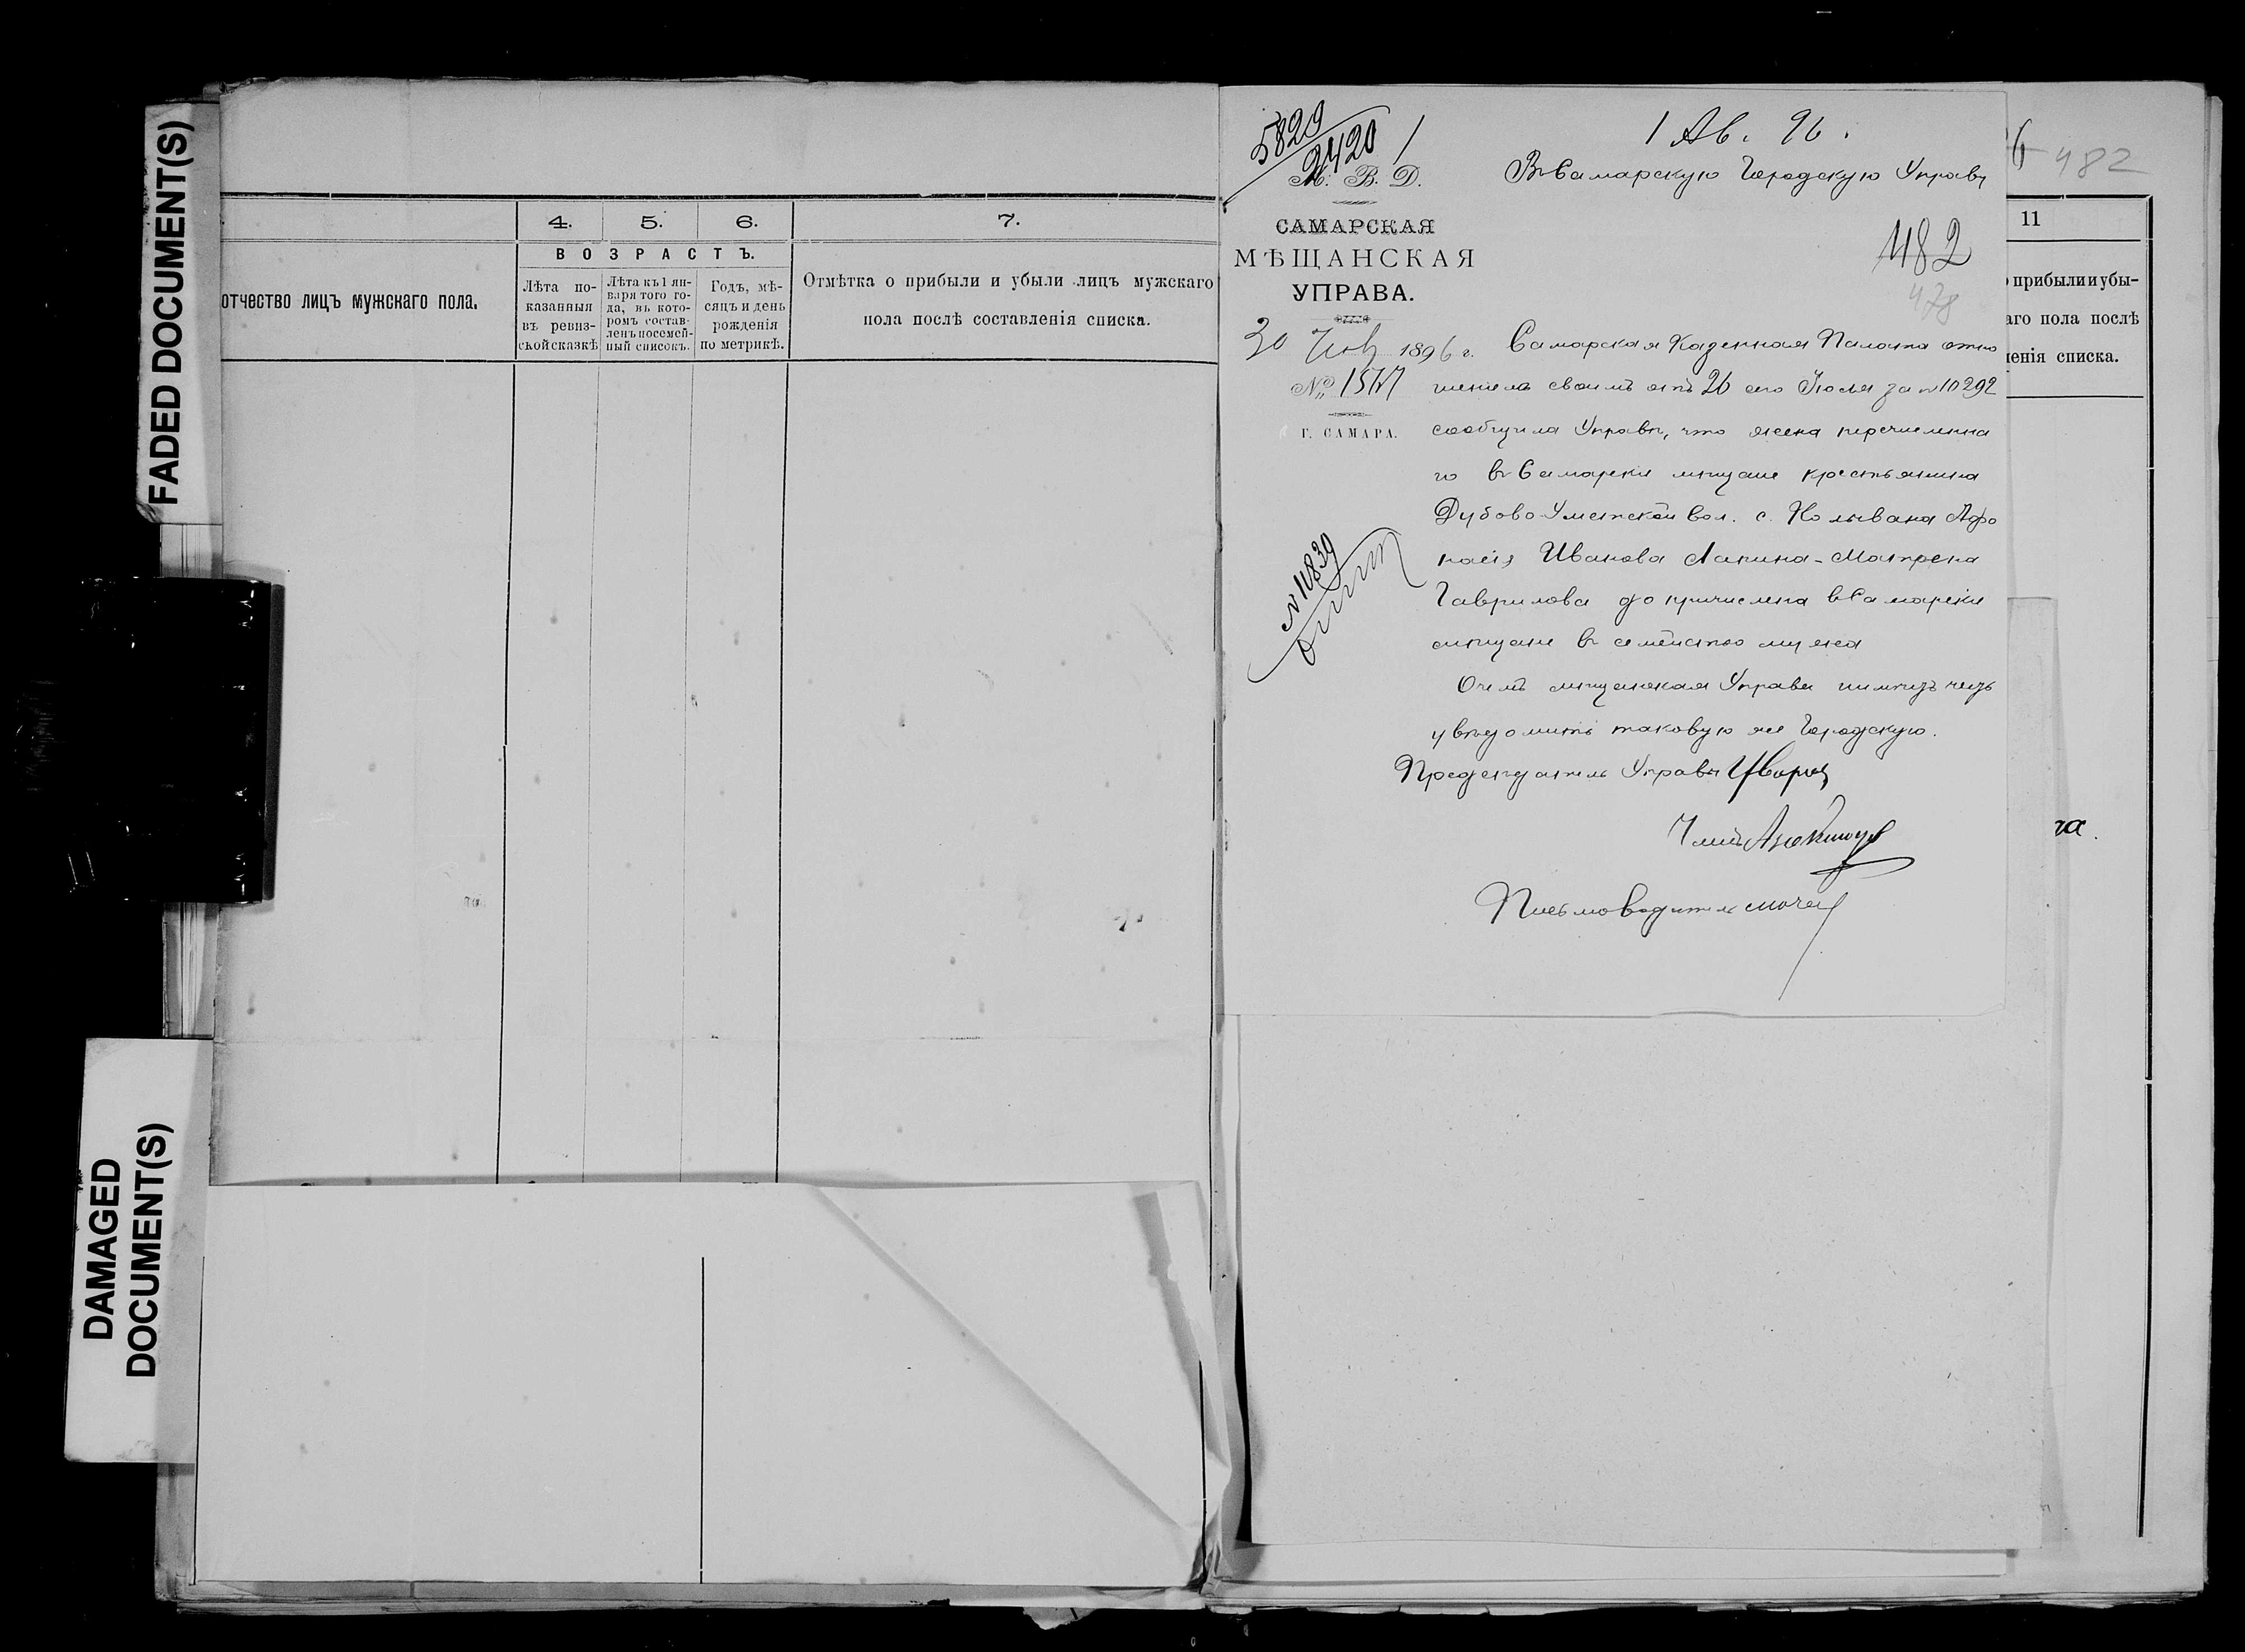 FADED DOCUMENT(S)
DAMAGED
DOCUMENT(S)
4.
5.
6.
7.
ВОЗРАСТЪ.
отчество лицъ мужскаго пола.
Лѣта по-
казанныя
въ ревиз-
ской сказкѣ
Лѣта къ 1 ян-
варя того го-
да, въ кото-
ромъ состав-
ленъ посемей-
ный списокъ.
Годъ, мѣ-
сяцъ и день
рожденія
по метрикѣ.
Отмѣтка о прибыли и убыли лицъ мужскаго
пола послѣ составленія списка.
5829
2420
1 Ав. 96.
М. В. Д.
САМАРСКАЯ
МѢЩАНСКАЯ
УПРАВА.
30 1896 г.
№
Г. САМАРА.
№ 11839
Въ Самарскую Городскую Управу
482
478
Самарская Казенная Палата отно
шениемъ своимъ отъ 26 сего Іюля за № 10292
сообщила Управѣ, что жена перечисленна
го въ Самарскіе мѣщане крестьянина
Дубово-Уметской вол. с. Колывана Афо
насія Иванова Лапина - Матрена
Гаврилова до причислена въ Самарскіе
мѣщане въ семейство мужа
О чемъ мѣщанская Управа имѣетъ честь
увѣдомить таковую же Городскую.
Председатель Управы
Членъ
Письмоводитель
482
11
прибыли и убы-
аго пола послѣ
ленія списка.
га.